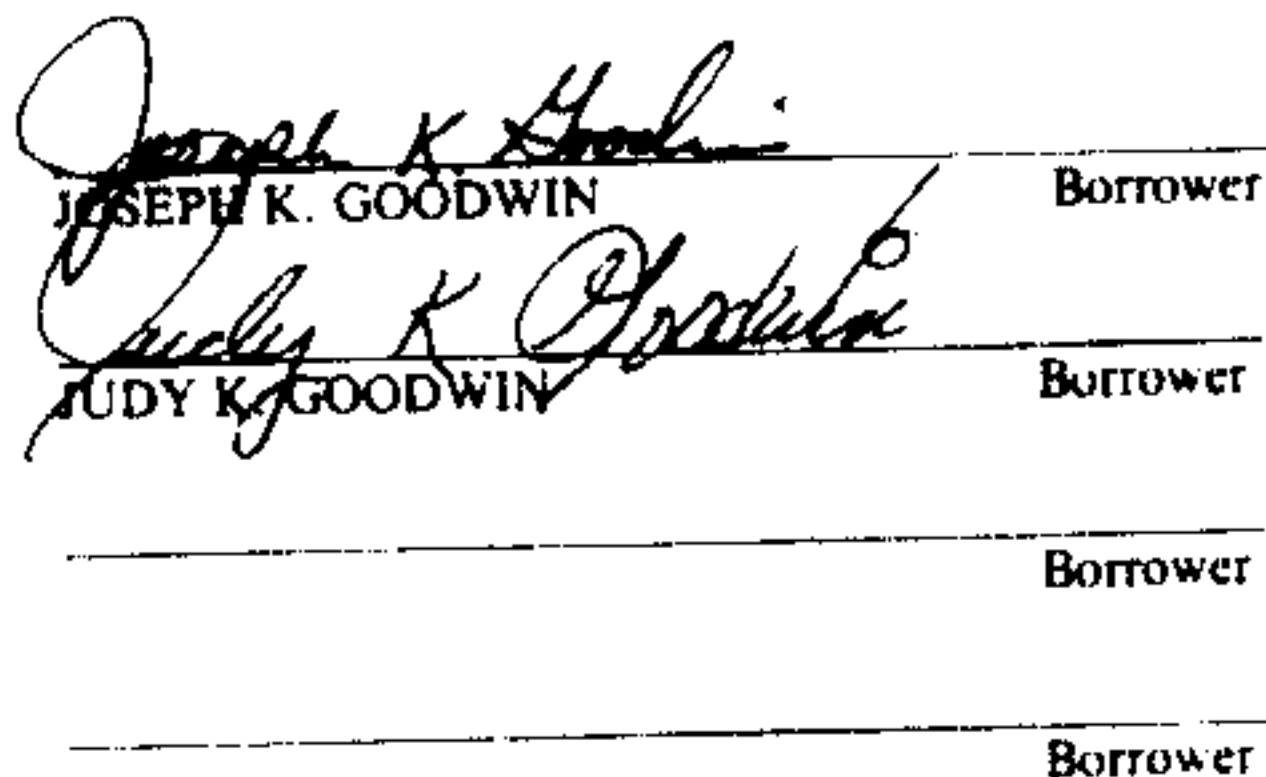 Joseph K. Goodwin
JOSEPH K. GOODWIN Borrower
Judy K Goodwin
JUDY K. GOODWIN Borrower
Borrower
Borrower